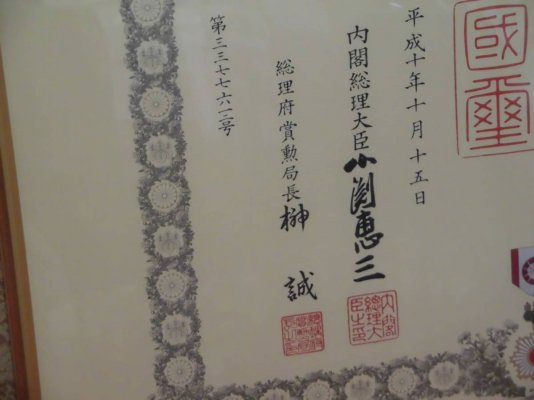 国璽
平成十年十月十五日
内閣総理大臣小渕恵三
内閣総理大臣之印
総理府賞勲局長榊誠
第三三七七六一二号